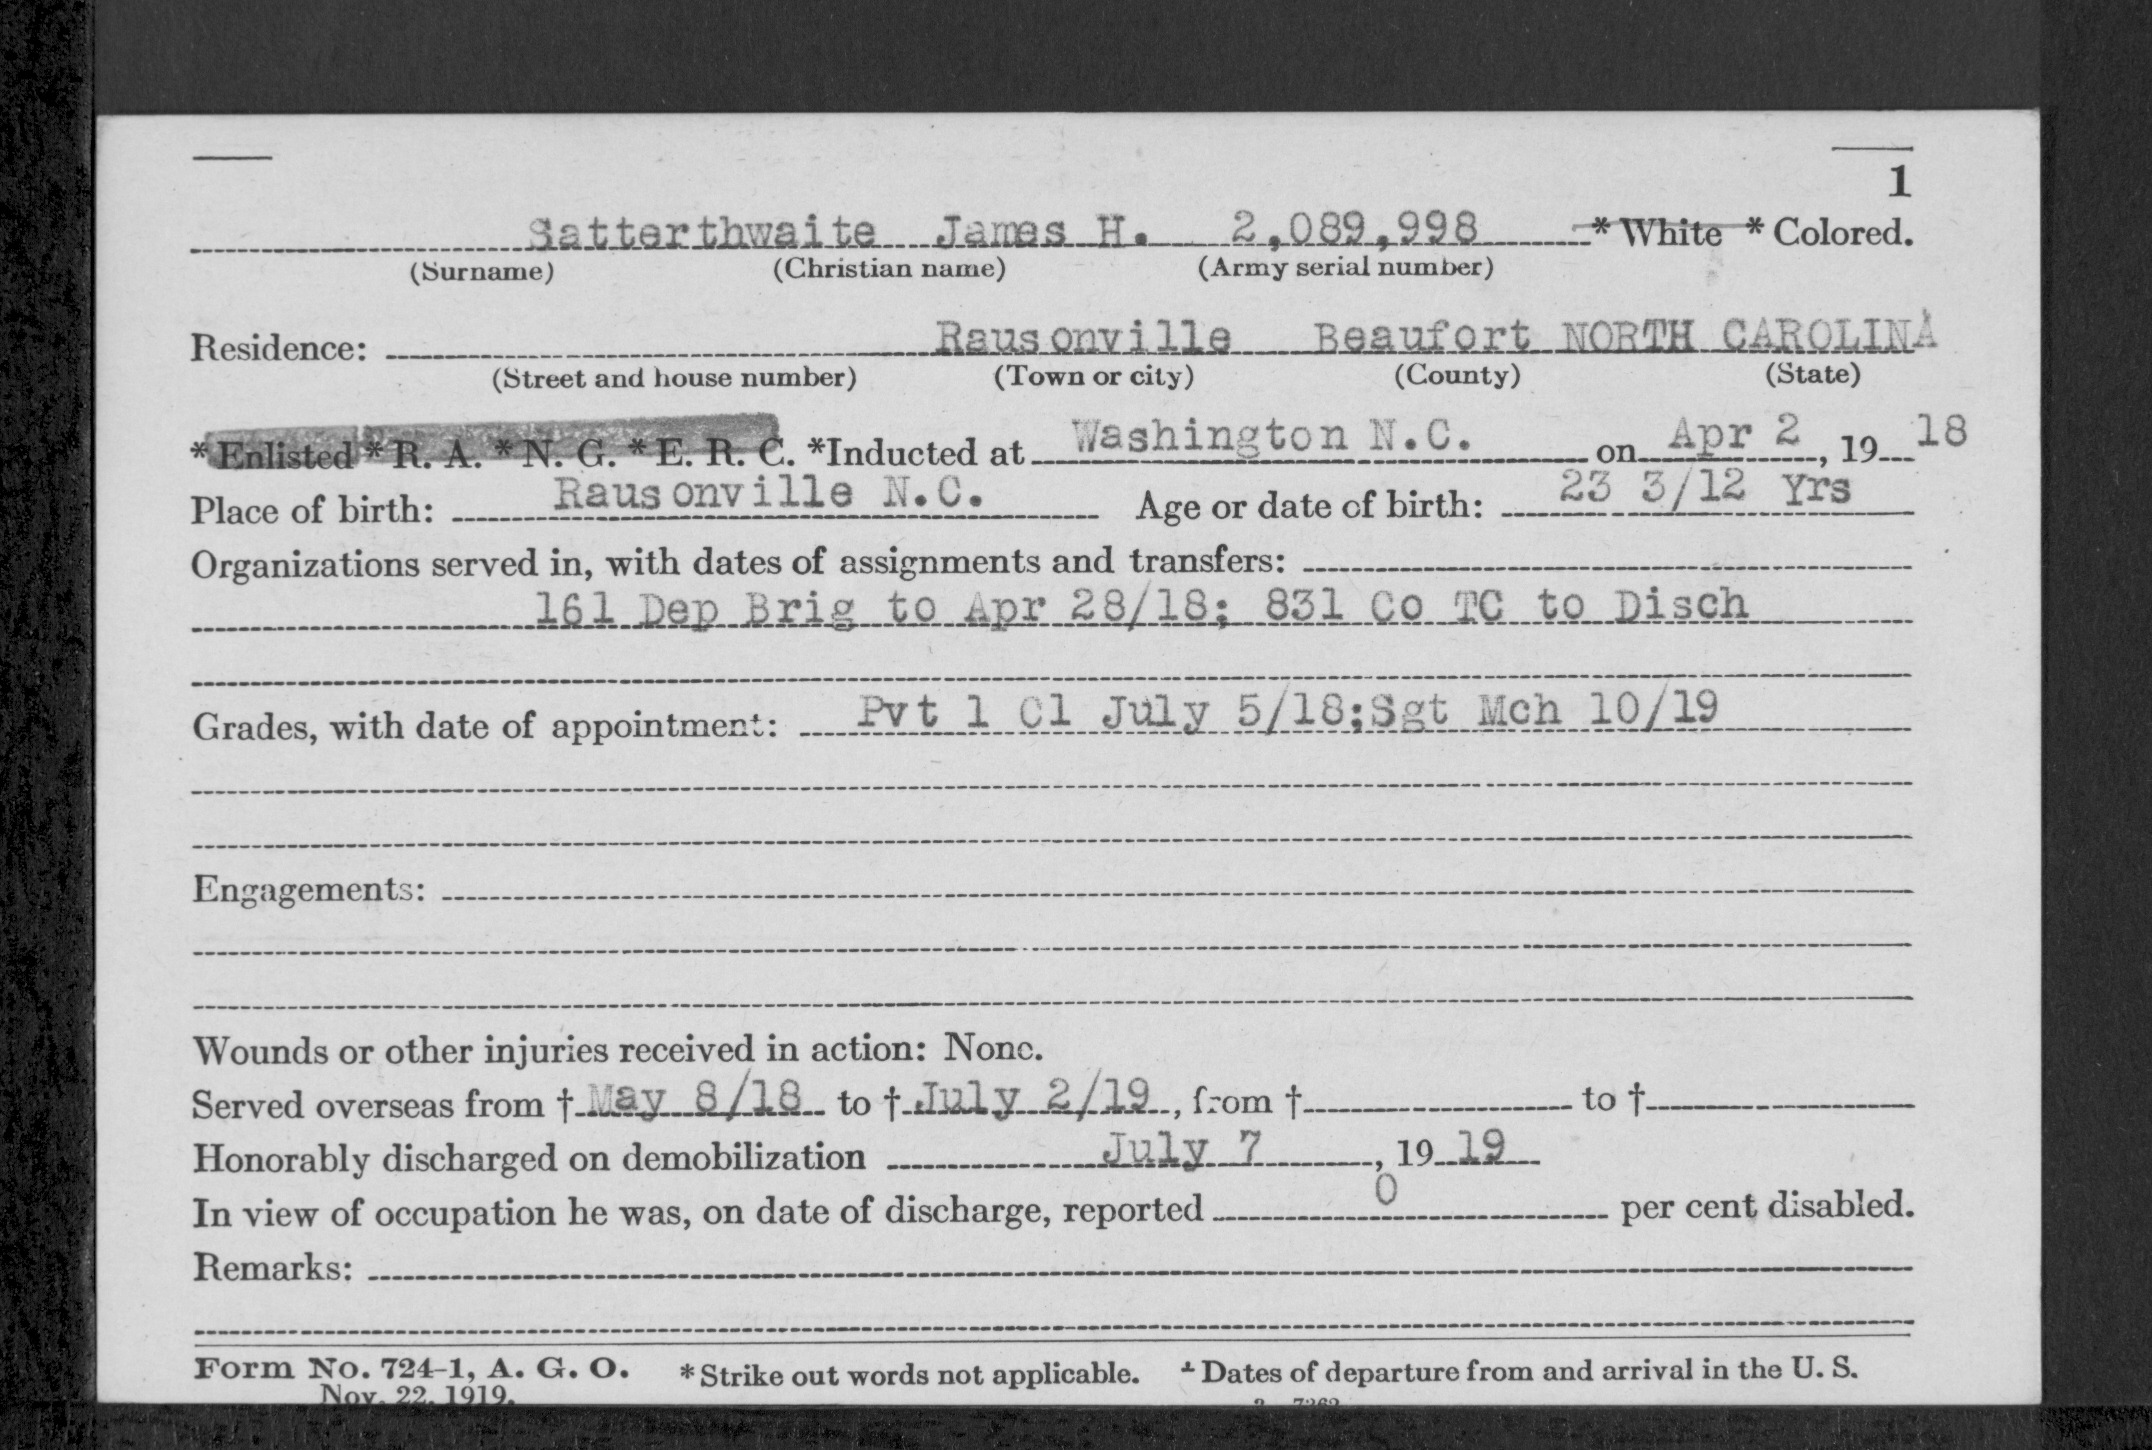 1
Satterthwaite James H. 2,089,998 * White * Colored.
(Surname) (Christian name) (Army serial number)
Residence: Rausonville Beaufort NORTH CAROLINA
(Street and house number) (Town or city) (County) (State)
* Enlisted * R. A. * N. G. * E. R. C. *Inducted at Washington N.C. on Apr 2, 19 18
Place of birth: Rausonville N.C. Age or date of birth: 23 3/12 Yrs
Organizations served in, with dates of assignments and transfers:
161 Dep Brig to Apr 28/18; 831 Co TC to Disch
Grades, with date of appointment: Pvt 1 Cl July 5/18;Sgt Mch 10/19
Engagements:
Wounds or other injuries received in action: None.
Served overseas from † May 8/18 to † July 2/19, from † to †
Honorably discharged on demobilization July 7, 19 19
In view of occupation he was, on date of discharge, reported 0 per cent disabled.
Remarks:
Form No. 724-1, A. G. O. * Strike out words not applicable. † Dates of departure from and arrival in the U. S.
Nov. 22, 1919.